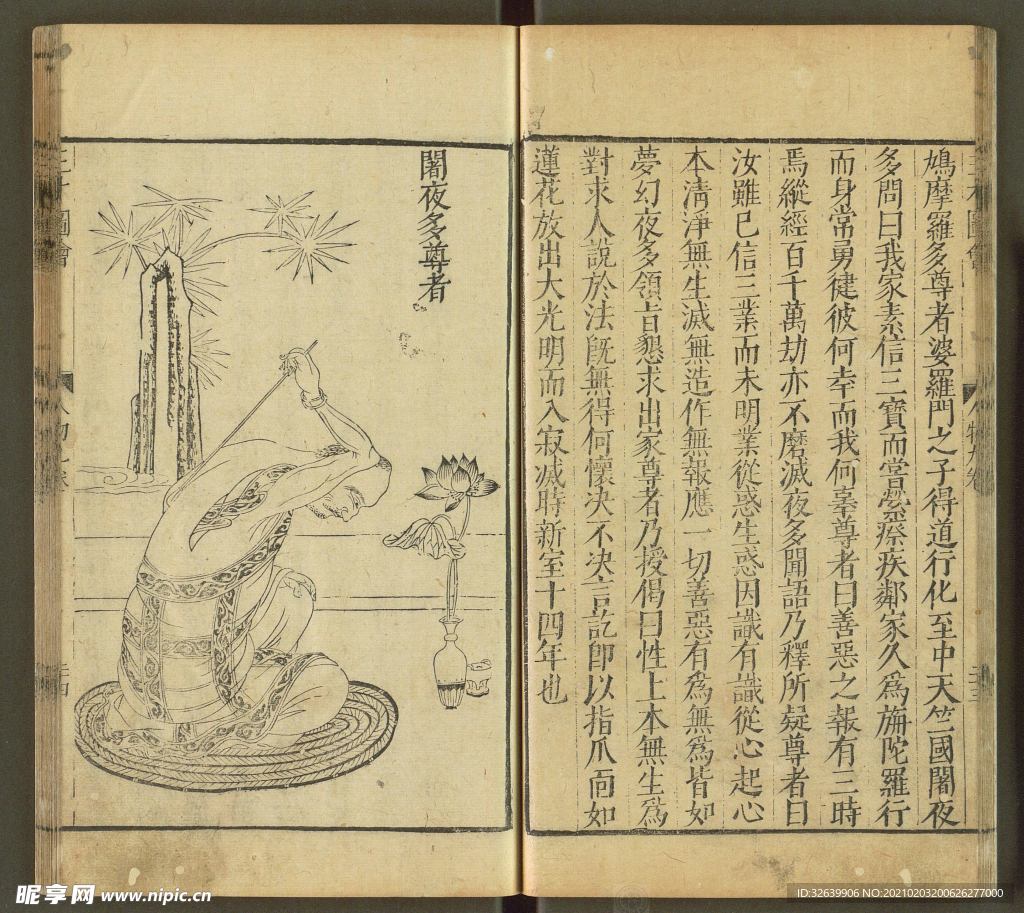 鳩摩羅多尊者婆羅門之子得道行化至中天竺國闍夜
多問曰我家素信三寶而嘗縈瘵疾鄰家久為旃陀羅行
而身常勇健彼何幸而我何辜尊者曰善惡之報有三時
焉縱經百千萬劫亦不磨滅夜多聞語乃釋所疑尊者曰
汝雖已信三業而未明業從惑生惑因識有識從心起心
本清淨無生滅無造作無報應一切善惡有為無為皆如
夢幻夜多領旨懇求出家尊者乃授偈曰性上本無生為
對求人說於法既無得何懷決不決言訖即以指爪面如
蓮花放出大光明而入寂滅時新室十四年也
闍夜多尊者
圖會
人物九卷
昵享网 www.nipic.cn
ID:32639906 NO:20210203200626277000